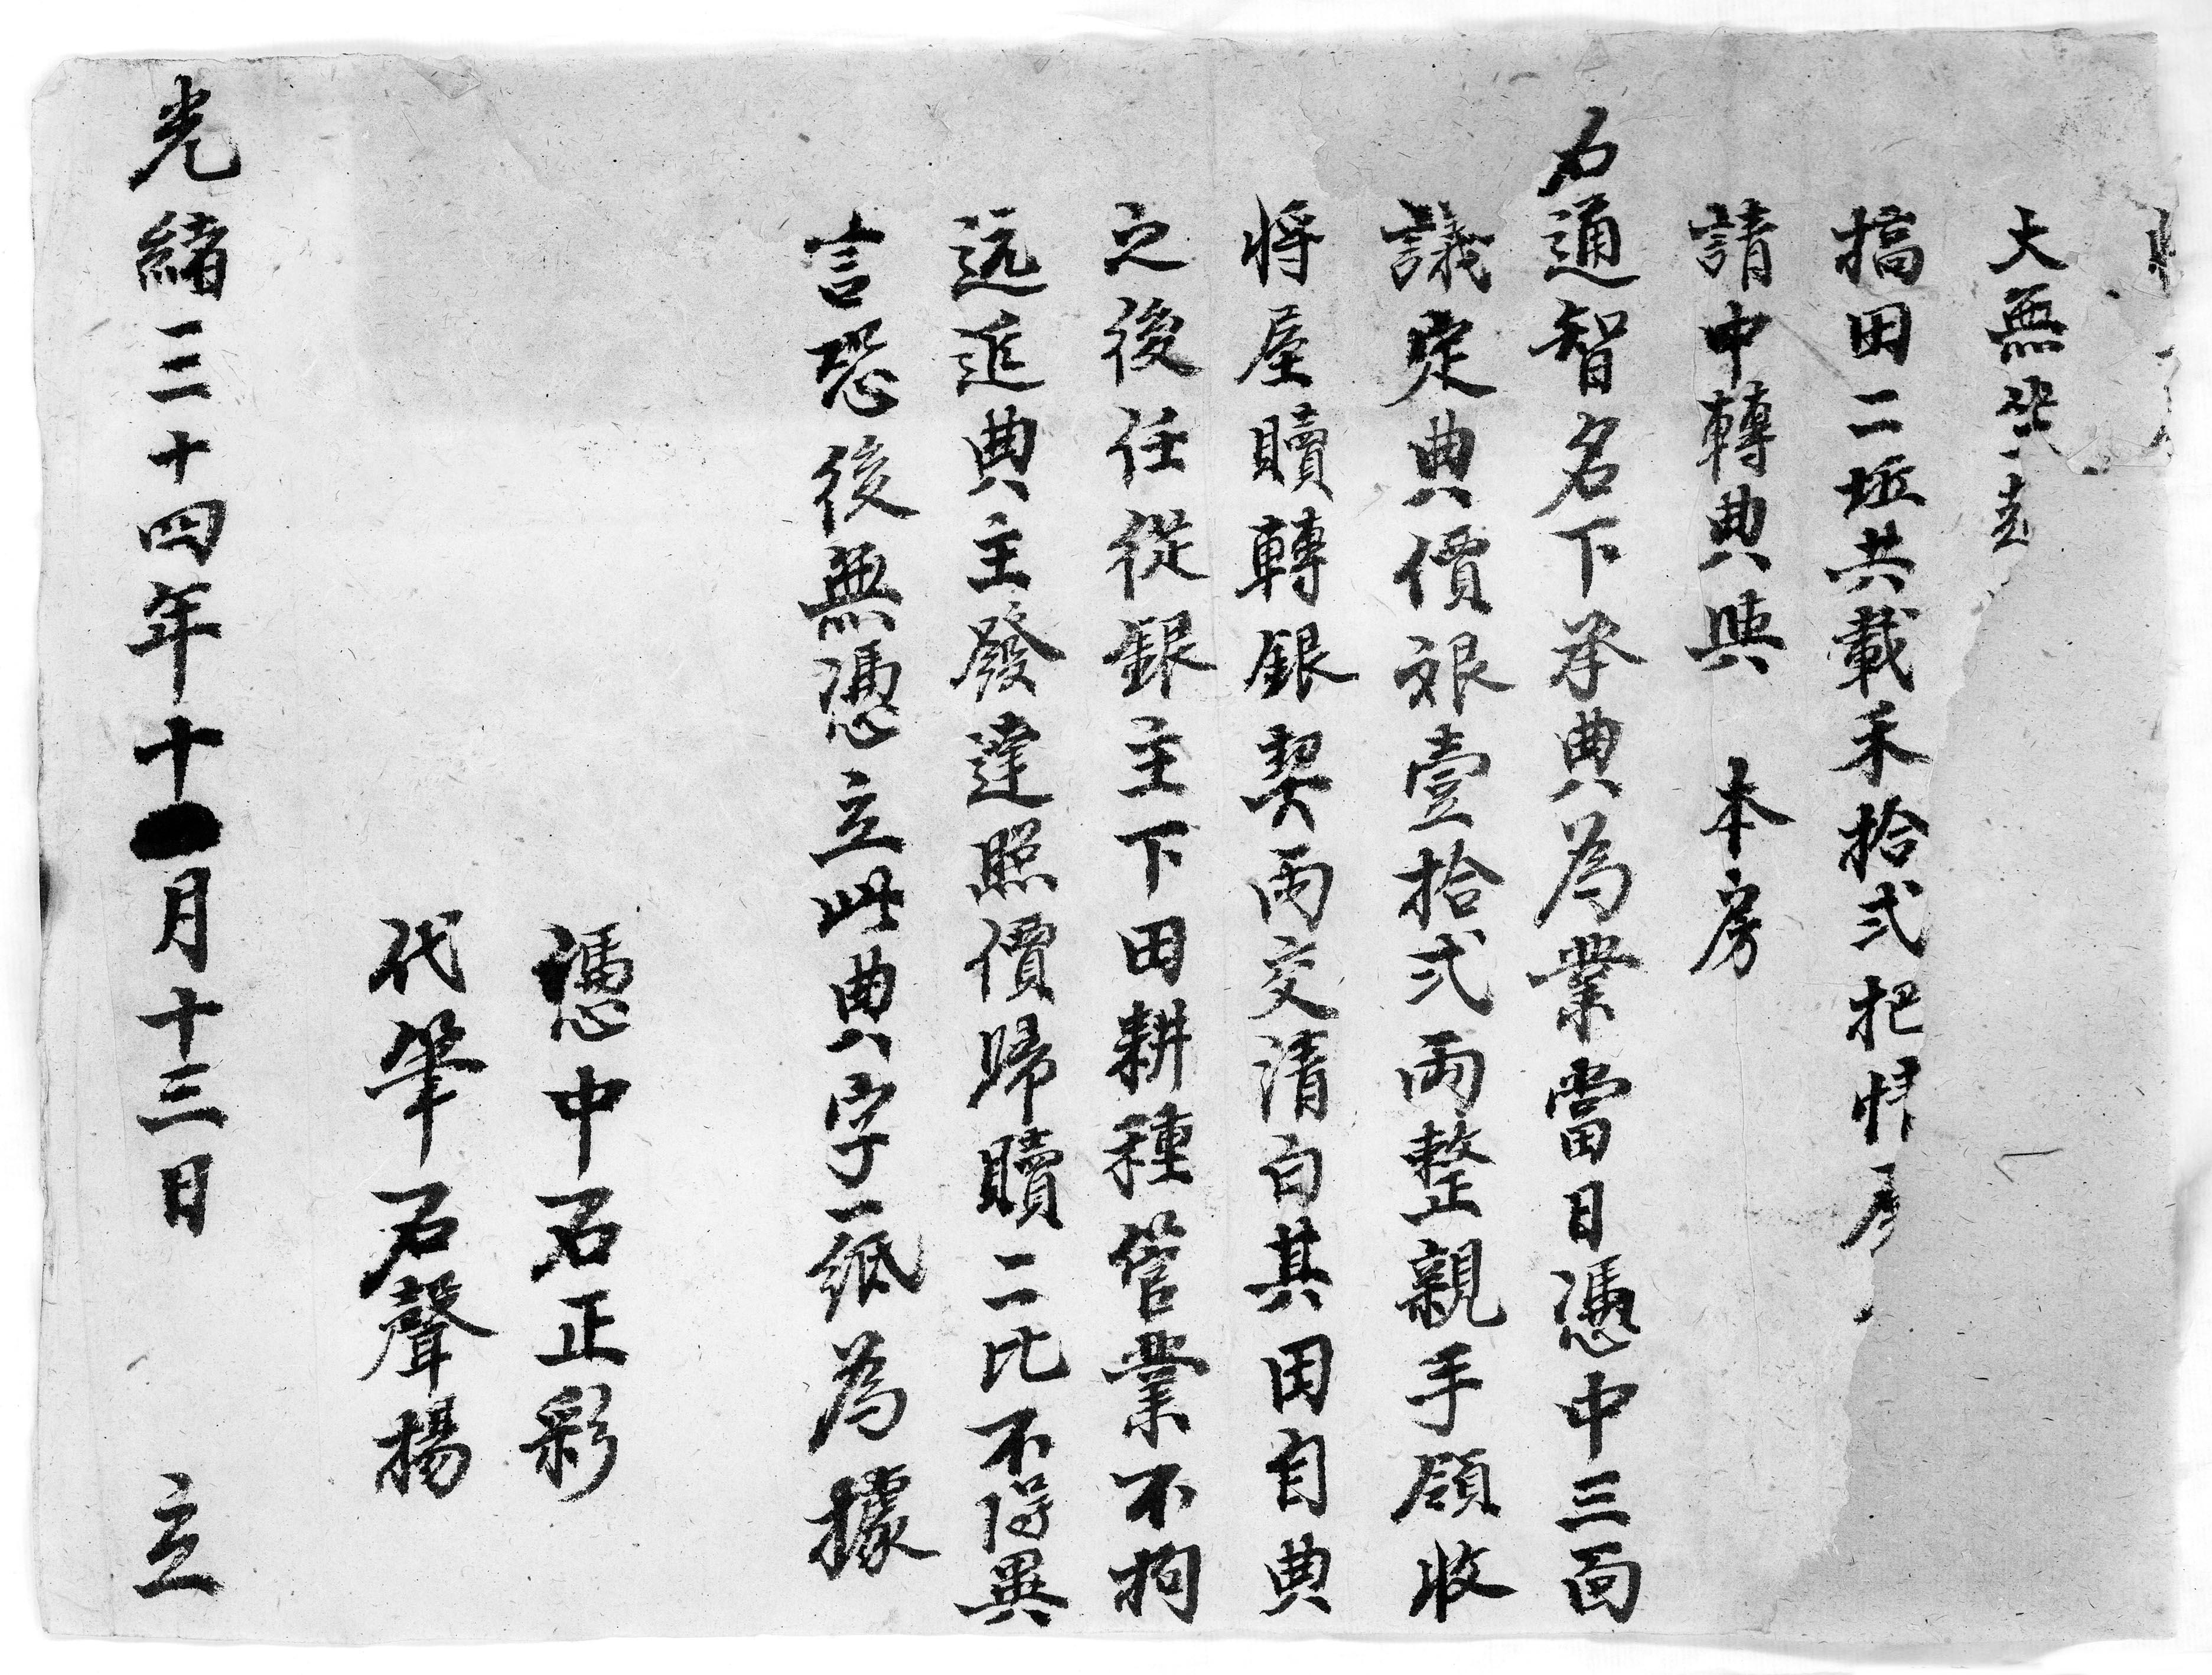 大無
搞田二坵共載禾拾弍把
請中轉典與 本房
石通智名下承典為業當日憑中三面
議定典價艮壹拾弍両整親手領收
将屋贖轉銀契両交清白其田自典
之後任從銀主下田耕種管業不拘
远近典主發達照價歸贖二比不得異
言恐後無憑立此典字一紙為據
憑中石正彩
代筆石聲揚
光緒三十四年十月十三日 立